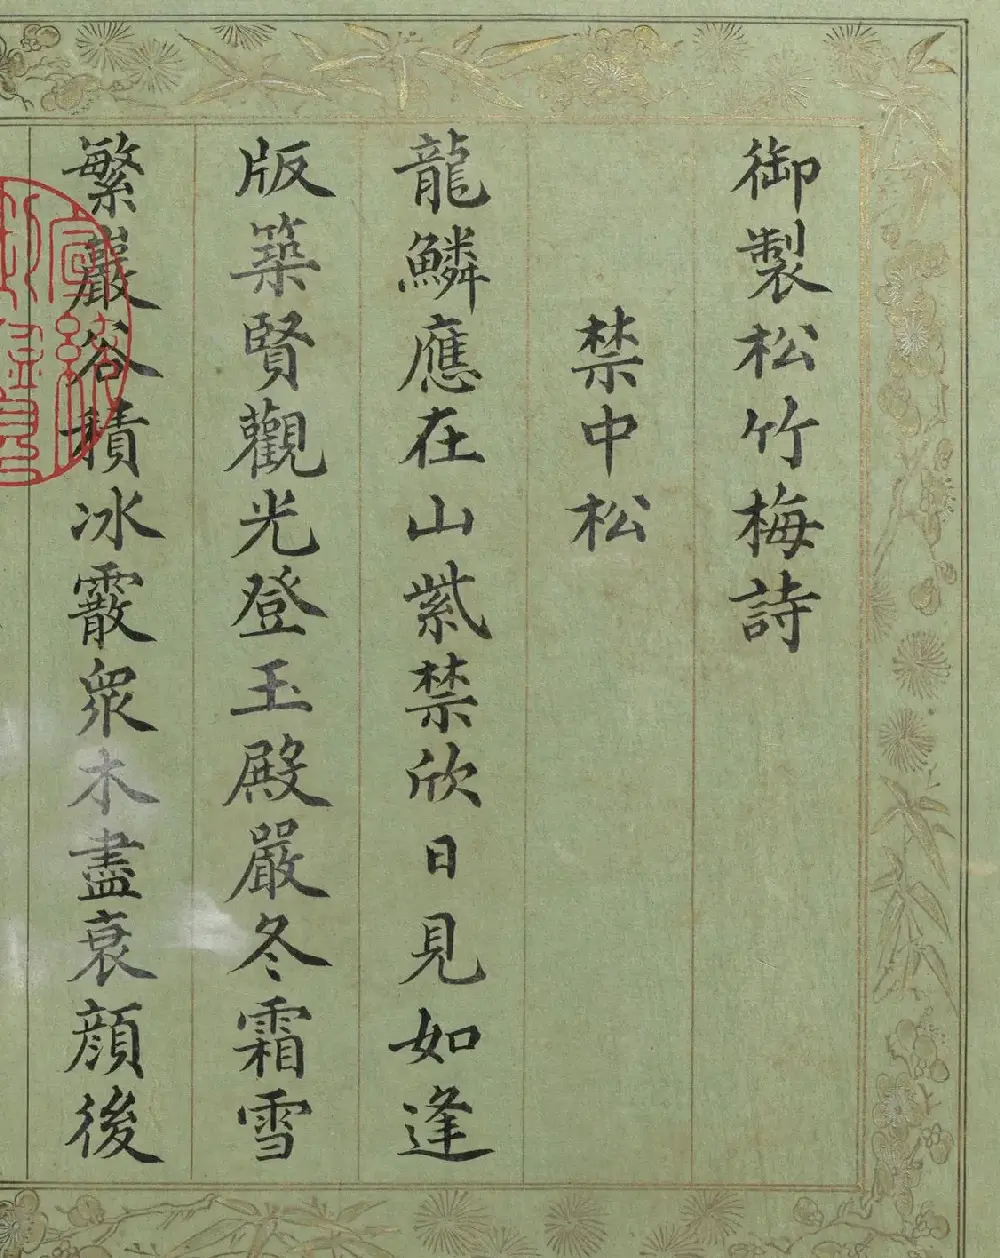 御製松竹梅詩
禁中松
龍鱗應在山紫禁欣日見如逢
版築賢觀光登玉殿嚴冬霜雪
繁巖谷積冰霰衆木盡衰顏後
宣統